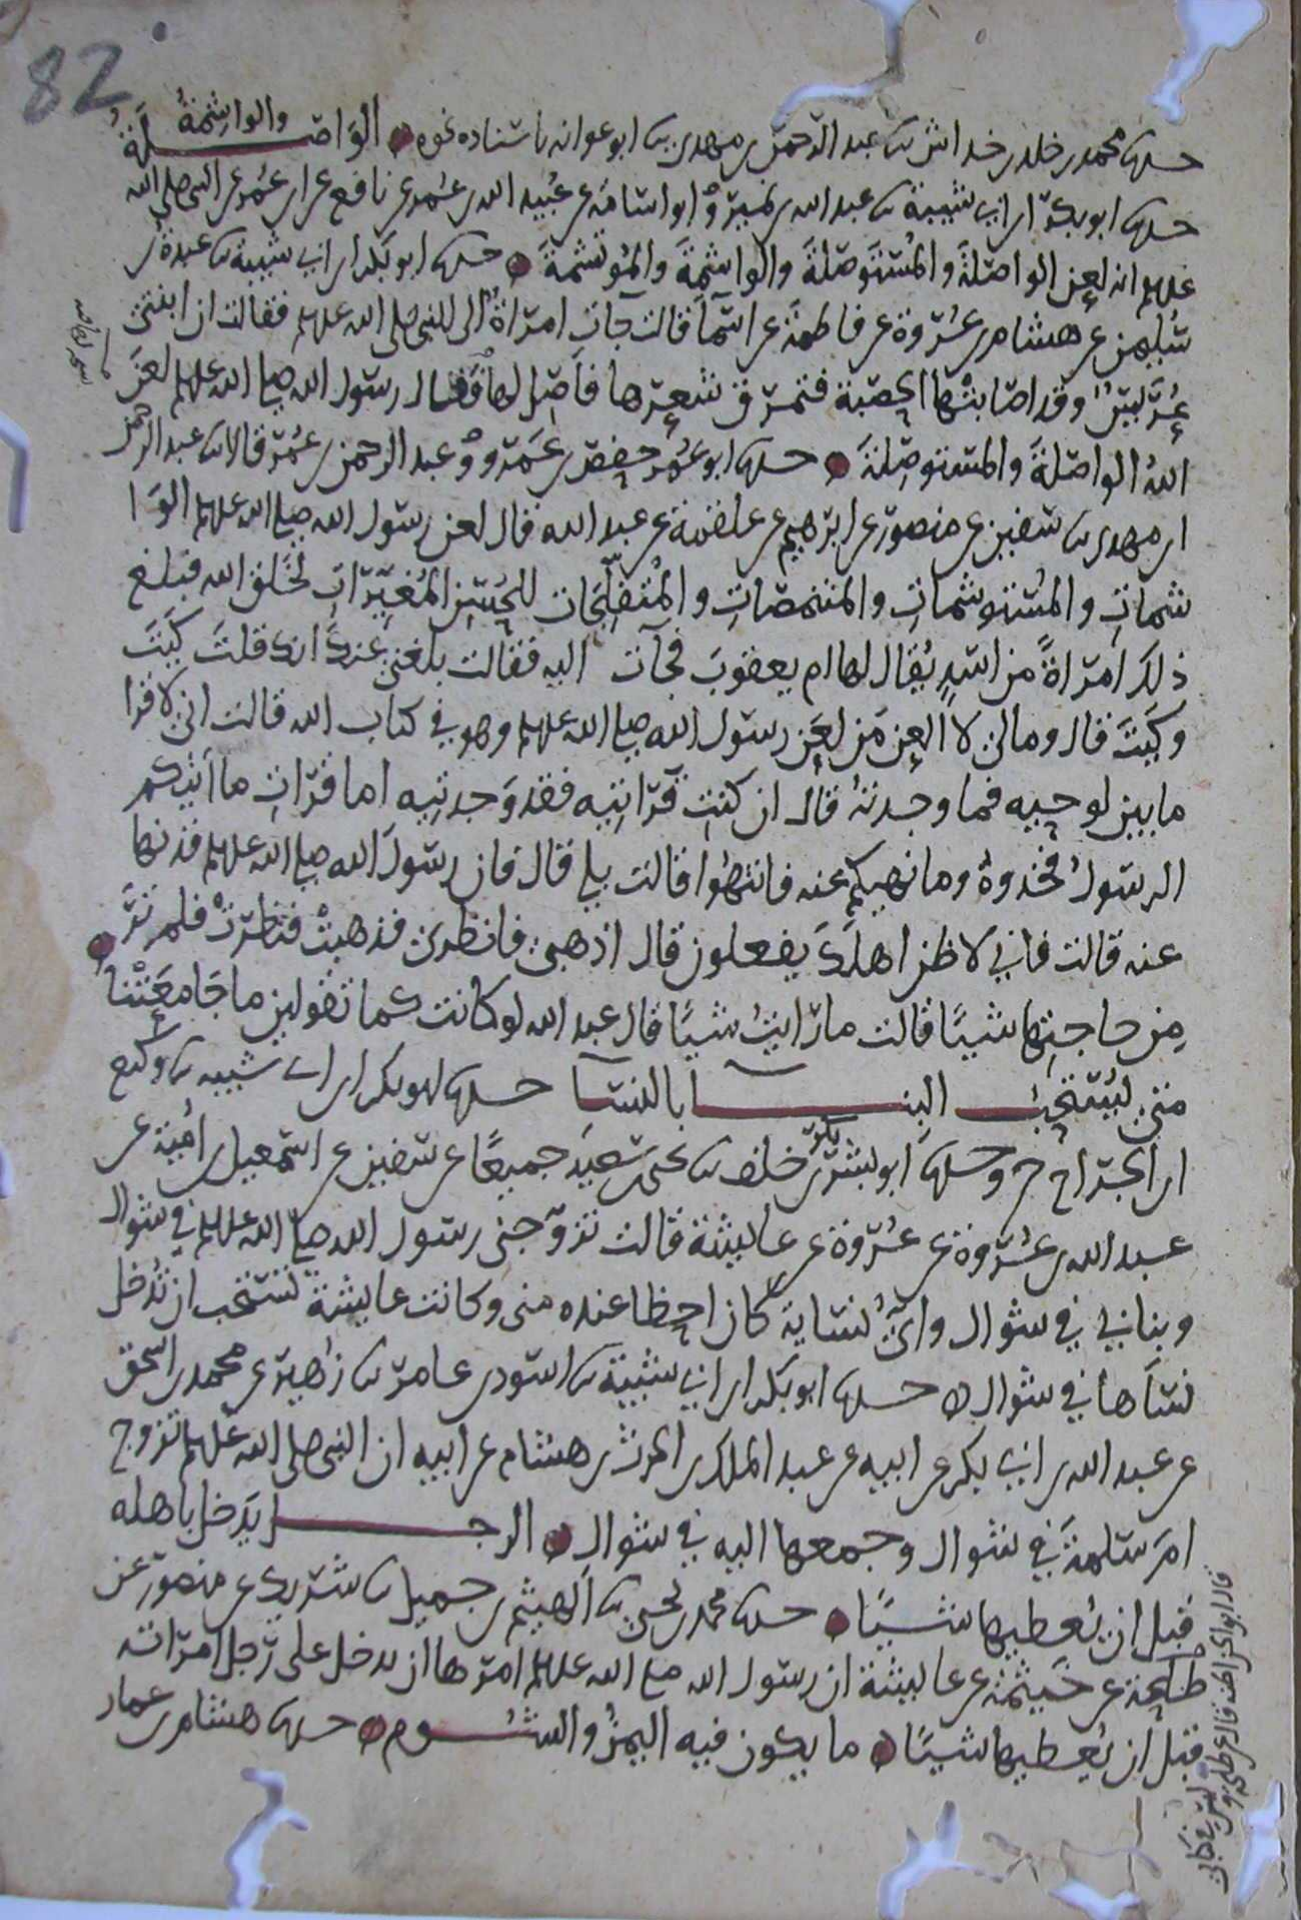 82
حدثنا محمد بن خلد بن خداش ثنا عبد الرحمن بن مهدي ثنا ابو عوانه باسناده نحوه الواصلة والواشمة
حدثنا ابو بكر ابن ابي شيبة ثنا عبد الله بن نمير وابو اسامة عن عبيد الله بن عمر عن نافع عن ابن عمر عن النبي صلى الله
عليه انه لعن الواصلة والمستوصلة والواشمة والموتشمة حدثنا ابو بكر ابن ابي شيبة ثنا عبدة بن
سليمن عن هشام بن عروة عن فاطمة عن اسما قالت جآت امراة الى النبي صلى الله عليه فقالت ان ابنتي
عريس وقد اصابتها الحصبة فتمرق شعرها فاصل لها فقال رسول الله صلى الله عليه لعن
الله الواصلة والمستوصلة حدثنا ابو عمر حفص بن عمرو وعبد الرحمن بن عمر قالا ثنا عبد الرحمن
ابن مهدي ثنا سفين عن منصور عن ابرهيم عن علقمة عن عبد الله قال لعن رسول الله صلى الله عليه الوا
شمات والمستوشمات والمتنمصات والمتفلجات للحسن المغيرات لخلق الله فبلغ
ذلك امراة من اسد يقال لها ام يعقوب فجآت اليه فقالت بلغني عنك انك قلت كيت
وكيت قال ومالي لا العن من لعن رسول الله صلى الله عليه وهو في كتاب الله قالت اني لاقرا
ما بين لوحيه فما وجدته قال ان كنت قراتيه فقد وجدتيه اما قرات ما اتيكم
الرسول فخذوه وما نهيكم عنه فانتهوا قالت بلى قال فان رسول الله صلى الله عليه قد نها
عنه قالت فاني لاظن اهلك يفعلون قال اذهبي فانظري فذهبت فنظرت فلم تر
من حاجتها شيا قالت ما رايت شيا قال عبد الله لو كانت كما تقولين ما جامعتنا
متى يستحب البنا بالنسآ حدثنا ابو بكر ابن ابي شيبه ثنا وكيع
ابن الجراح ح وحدثنا ابو بشر بكر بن خلف ثنا يحيى بن سعيد جميعا عن سفين عن اسمعيل بن امية عن
عبد الله بن عروة عن عروة عن عايشة قالت تزوجني رسول الله صلى الله عليه في شوال
وبنا بي في شوال واي نسايه كان احظا عنده مني وكانت عايشة تستحب ان تدخل
نسآها في شوال حدثنا ابو بكر ابن ابي شيبة ثنا اسود بن عامر ثنا زهير عن محمد بن اسحق
عن عبد الله بن ابي بكر عن ابيه عن عبد الملك بن الحرث بن هشام عن ابيه ان النبي صلى الله عليه تزوج
ام سلمة في شوال وجمعها اليه في شوال الرجل يدخل باهله
قبل ان يعطيها شيا حدثنا محمد بن يحيى ثنا الهيثم بن جميل ثنا شريك عن منصور عن
طلحة عن خيثمة عن عايشة ان رسول الله صلى الله عليه امرها ان تدخل على رجل امراته
قبل ان يعطيها شيا ما يكون فيه اليمن والشوم حدثنا هشام بن عمار